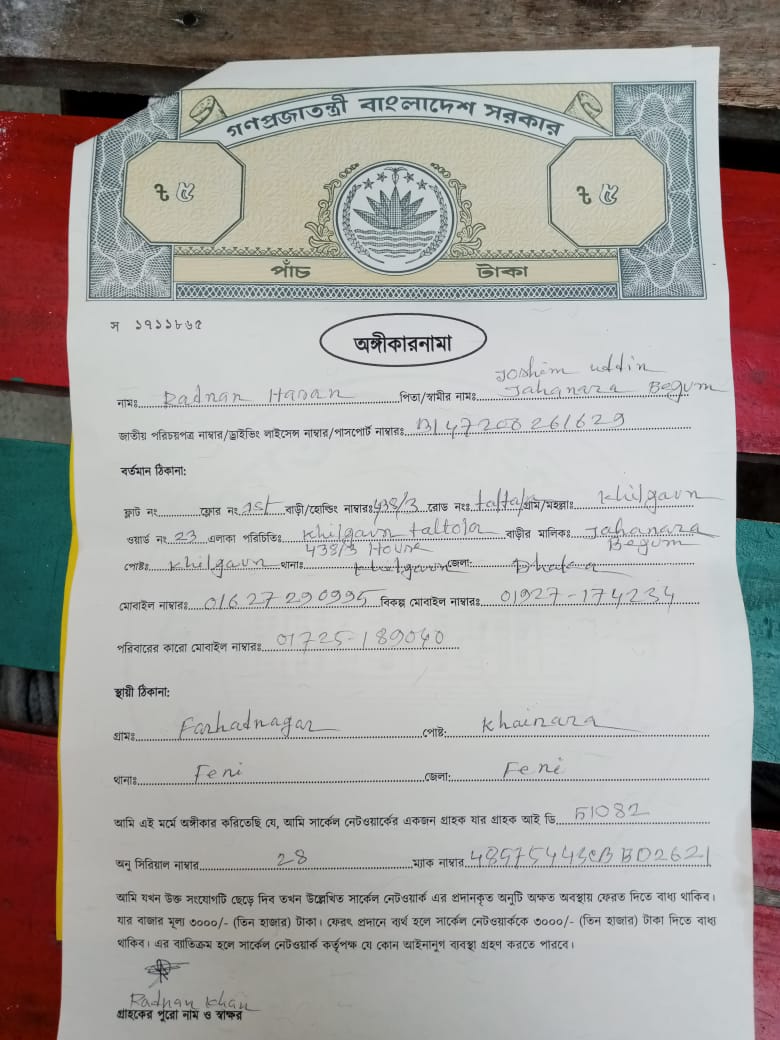 গণপ্রজাতন্ত্রী বাংলাদেশ সরকার
৳ ৫ ৳ ৫
পাঁচ টাকা
স ১৭১১৮৬৫
অঙ্গীকারনামা
Joshim uddin
নামঃ Radnan Hasan পিতা/স্বামীর নামঃ Jahanara Begum
জাতীয় পরিচয়পত্র নাম্বার/ড্রাইভিং লাইসেন্স নাম্বার/পাসপোর্ট নাম্বারঃ 47208261629
বর্তমান ঠিকানা:
ফ্লাট নং ফ্লোর নং 1st বাড়ী/হোল্ডিং নাম্বারঃ 438/3 রোড নংঃ গ্রাম/মহল্লা: Khilgaun
ওয়ার্ড নং 23 এলাকা পরিচিতিঃ Khilgaun taltola বাড়ীর মালিকঃ Jahanara
438/3 House Begum
পোষ্টঃ Khilgaun থানাঃ জেলা: Dhaka
মোবাইল নাম্বারঃ 01627290995 বিকল্প মোবাইল নাম্বারঃ 01927-174234
পরিবারের কারো মোবাইল নাম্বারঃ 01725-189040
স্থায়ী ঠিকানা:
গ্রামঃ Farhadnagar পোষ্ট: Khainara
থানাঃ Feni জেলা: Feni
আমি এই মর্মে অঙ্গীকার করিতেছি যে, আমি সার্কেল নেটওয়ার্কের একজন গ্রাহক যার গ্রাহক আই ডি 51082
অনু সিরিয়াল নাম্বার 28 ম্যাক নাম্বার
আমি যখন উক্ত সংযোগটি ছেড়ে দিব তখন উল্লেখিত সার্কেল নেটওয়ার্ক এর প্রদানকৃত অনুটি অক্ষত অবস্থায় ফেরত দিতে বাধ্য থাকিব।
যার বাজার মূল্য ৩০০০/- (তিন হাজার) টাকা। ফেরৎ প্রদানে ব্যর্থ হলে সার্কেল নেটওয়ার্ককে ৩০০০/- (তিন হাজার) টাকা দিতে বাধ্য
থাকিব। এর ব্যতিক্রম হলে সার্কেল নেটওয়ার্ক কর্তৃপক্ষ যে কোন আইনানুগ ব্যবস্থা গ্রহণ করতে পারবে।
Radnan Khan
গ্রাহকের পুরো নাম ও স্বাক্ষর